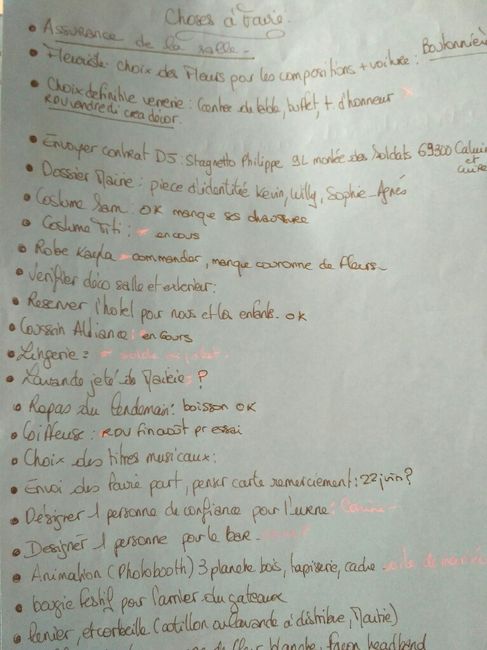 Choses à Faire.
• Assurance de la salle -
• Fleuriste choix des fleurs pour les compositions + voiture : Boutonnière
• Choix definitive verrerie : Centre de table, buffet, + d'honneur x
RDV vendredi crea decor.
• Envoyer contrat DJ : Stagnetto Philippe 9L montée des Soldats 69300 Caluire
et
cuire
• Dossier Mairie : piece d'identitée Kevin, Willy, Sophie - Agnés
• Costume Sam : OK manque ses chaussure
• Costume Titi : en cours
• Robe Kayla - commander, manque couronne de fleurs -
• Verifier déco salle et exterieur :
• Reserver l'hotel pour nous et les enfants. OK
• Coussin Alliance : en cours
• Lingerie :
• Lavande jeté de Mairie : ?
• Repas du lendemain : boisson OK
• Coiffeuse : RDV fin août pr essai
• Choix des titres musicaux :
• Envoi des faire part, penser carte remerciement : 22 juin ?
• Désigner 1 personne de confiance pour l'urne :
• Designer 1 personne pour le bar -
• Animation (Photobooth) 3 planche bois, tapisserie, cadre -
• bougie festif pour l'arriver du gateaux
• Panier, et corbeille (cotillon ou lavande a distribué, Mairie)
de fleur blanche, façon headband